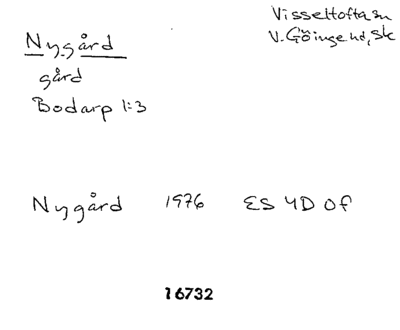 Nygård
gård
Bodarp 1:3
Visseltofta sn
V. Göinge hd, Sk
Nygård 1976 ES 4D 0f
16732